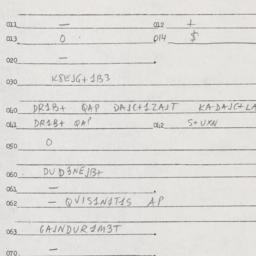 011 — 012 +
013 0 014 $
020 —
030 KSEJG+1B3
040 DR1B+ QAP DAJC+1ZAJT KA-DAJC+LA
041 DR1B+ QAP 042 S+UXN
050 0
060 DUD3NEJB+
061 —
062 — QVIS1N1T1S AP
063 GAJNDUR1M3T
070 —